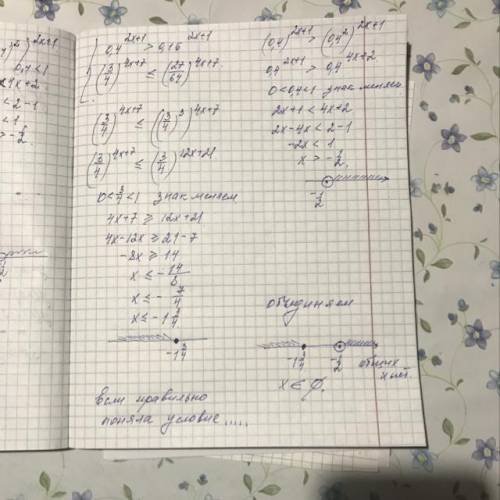 0,4^{2x+1} > 0,16^{2x+1}
(3/4)^{4x+7} ≤ (27/64)^{4x+7}
(3/4)^{4x+7} ≤ ((3/4)^3)^{4x+7}
(3/4)^{4x+7} ≤ (3/4)^{12x+21}
0 < 3/4 < 1 знак меняем
4x+7 ≥ 12x+21
4x-12x ≥ 21-7
-8x ≥ 14
x ≤ -14/8
x ≤ -7/4
x ≤ -1 3/4
-1 3/4
если правильно
поняла условие.....
(0,4)^{2x+1} > (0,4^2)^{2x+1}
0,4^{2x+1} > 0,4^{4x+2}
0<0,4<1 знак меняем
2x+1 < 4x+2
2x-4x < 2-1
-2x < 1
x > -1/2
-1/2
объединяем
-1 3/4 -1/2 общих
x ∈ ∅.
)^2)^{2x+1}
0,4<1
4x+2
< 2-1
< 1
> -1/2